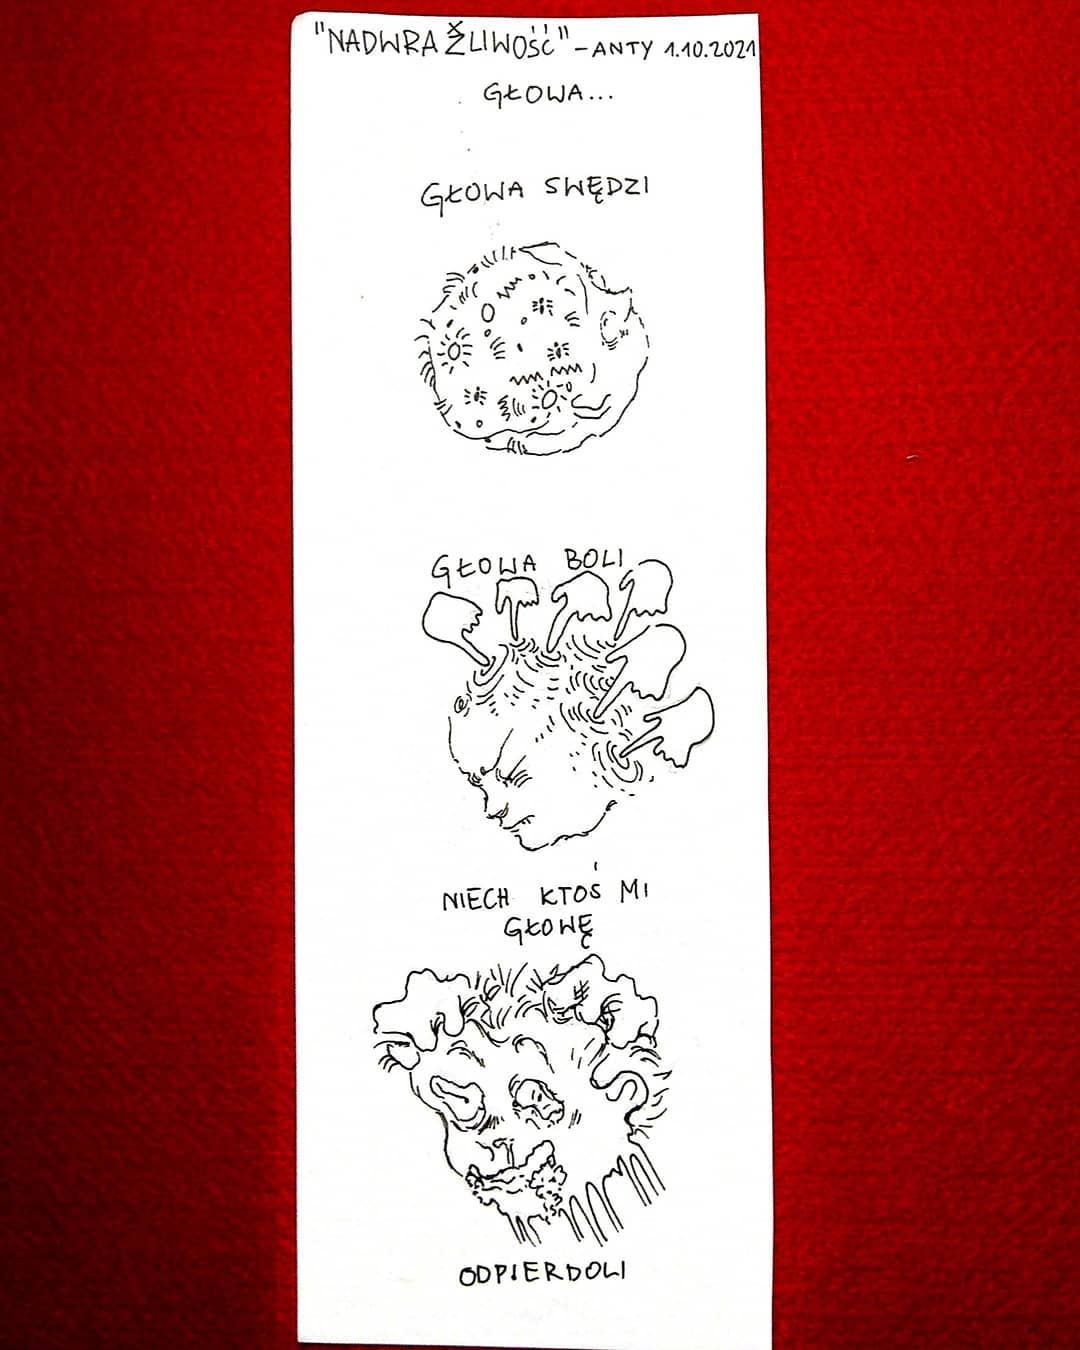 "NADWRAŻLIWOŚĆ" - ANTY 1.10.2021
GŁOWA...
GŁOWA SWĘDZI
GŁOWA BOLI
NIECH KTOŚ MI
GŁOWĘ
ODPIERDOLI